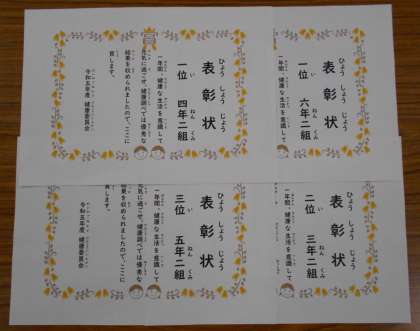 表彰状
ひょう しょう じょう
一位 六年二組
い ねん くみ
一年間、健康な生活を意識して
表彰状
ひょう しょう じょう
一位 四年二組
い ねん くみ
一年間、健康な生活を意識して
元気に過ごせ、健康調べでは優秀な
結果を収められましたので、ここに
賞します。
令和五年度 健康委員会
表彰状
ひょう しょう じょう
二位 三年二組
い ねん くみ
一年間、健康な生活を意識して
表彰状
ひょう しょう じょう
三位 五年二組
い ねん くみ
一年間、健康な生活を意識して
元気に過ごせ、健康調べでは優秀な
結果を収められましたので、ここに
賞します。
令和五年度 健康委員会